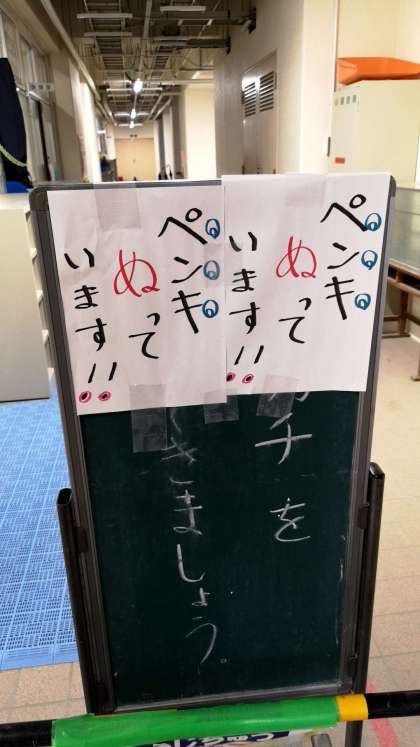 ペンキ
ぬって
います!!
ペンキ
ぬって
います!!
チを
きましょう。